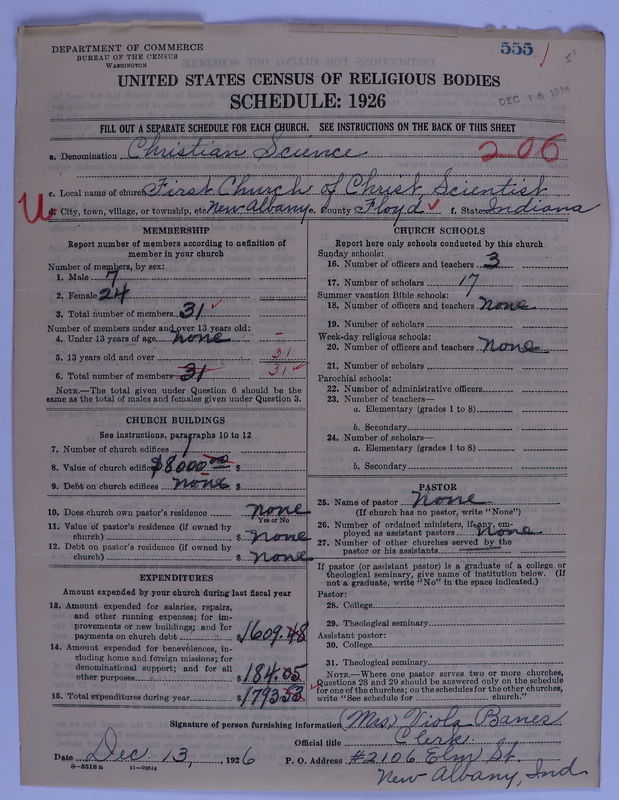 DEPARTMENT OF COMMERCE
BUREAU OF THE CENSUS
WASHINGTON
555
DEC 16 1926
UNITED STATES CENSUS OF RELIGIOUS BODIES
SCHEDULE: 1926
FILL OUT A SEPARATE SCHEDULE FOR EACH CHURCH. SEE INSTRUCTIONS ON THE BACK OF THIS SHEET
a. Denomination Christian Science 206
c. Local name of church First Church of Christ, Scientist
U d. City, town, village, or township, etc. New Albany e. County Floyd f. State Indiana
MEMBERSHIP
Report number of members according to definition of
member in your church
Number of members, by sex:
1. Male 7
2. Female 24
3. Total number of members 31
Number of members under and over 13 years old:
4. Under 13 years of age none -
5. 13 years old and over 31
6. Total number of members 31 31
NOTE.—The total given under Question 6 should be
same as the total of males and females given under Question 3.
CHURCH BUILDINGS
See instructions, paragraphs 10 to 12
7. Number of church edifices 1
8. Value of church edifices $8000.00 $
9. Debt on church edifices none $
10. Does church own pastor's residence none
Yes or No
11. Value of pastor's residence (if owned by
church) $ none
12. Debt on pastor's residence (if owned by
church) $ none
EXPENDITURES
Amount expended by your church during last fiscal year
13. Amount expended for salaries, repairs,
and other running expenses; for im-
provements or new buildings; and for
payments on church debt $1609.48
14. Amount expended for benevolences, in-
cluding home and foreign missions; for
denominational support; and for all
other purposes $184.05
15. Total expenditures during year $1793.53
CHURCH SCHOOLS
Report here only schools conducted by this church
Sunday schools:
16. Number of officers and teachers 3
17. Number of scholars 17
Summer vacation Bible schools:
18. Number of officers and teachers none
19. Number of scholars
Week-day religious schools:
20. Number of officers and teachers none
21. Number of scholars
Parochial schools:
22. Number of administrative officers
23. Number of teachers—
a. Elementary (grades 1 to 8)
b. Secondary
24. Number of scholars—
a. Elementary (grades 1 to 8)
b. Secondary
PASTOR
25. Name of pastor None
(If church has no pastor, write "None")
26. Number of ordained ministers, if any, em-
ployed as assistant pastors none
27. Number of other churches served by the
pastor or his assistants
If pastor (or assistant pastor) is a graduate of a college or
theological seminary, give name of institution below. (If
not a graduate, write "No" in the space indicated.)
Pastor:
28. College
29. Theological seminary
Assistant pastor:
30. College
31. Theological seminary
NOTE.—Where one pastor serves two or more churches,
Questions 28 and 29 should be answered only on the schedule
for one of the churches; on the schedules for the other churches,
write "See schedule for church."
Signature of person furnishing information (Mrs) Viola Banes
Official title Clerk
Date Dec 13, 1926 P. O. Address #2106 Elm St.
8-5518 a
New Albany, Ind.